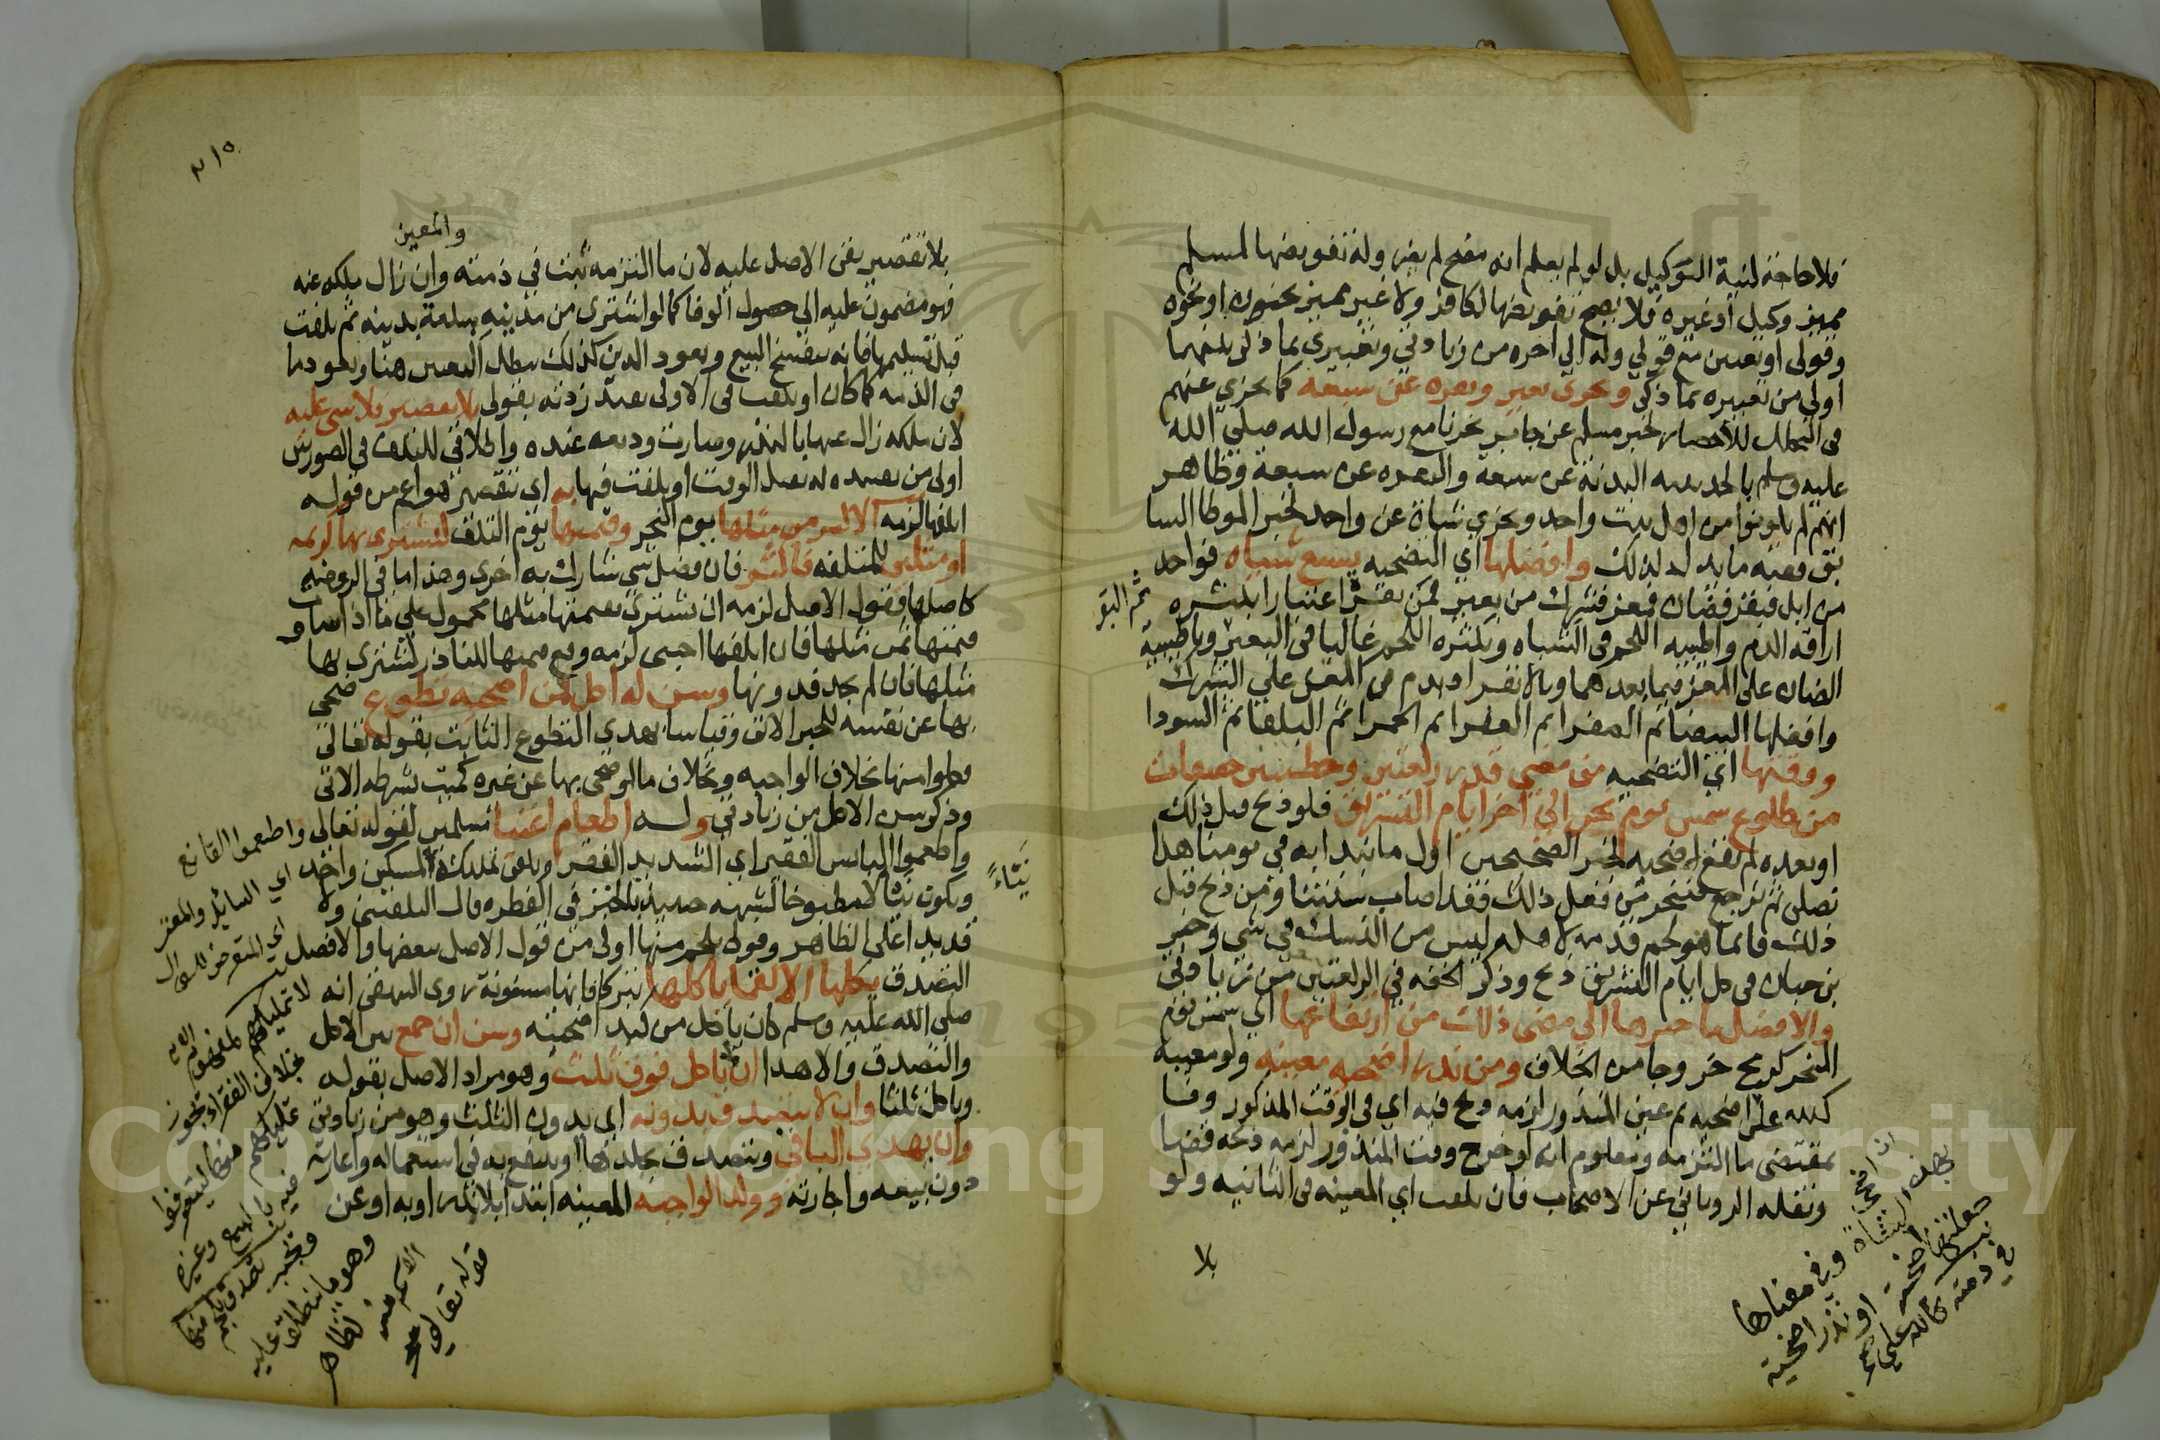 فلا حاجة لنية التوكيل بل لو لم يعلم انه مضح لم يضر وله تفويضها لمسلم
مميز وكيل او غيره فلا يصح تفويضها لكافر ولا غير مميز بجنون او نحوه
وقولي او تعيين مع قولي وله الى اخره من زيادتي وتعبيري بما ذكر فيهما
اولى من تعبيره بما ذكر ويجزي بعير وبقره عن سبعه كما يجزي عنهم
في التحلل للاحصار لخبر مسلم عن جابر نحرنا مع رسول الله صلى الله
عليه وسلم بالحديبيه البدنة عن سبعة والبقره عن سبعة وظاهر
انهم لم يكونوا من اهل بيت واحد ويجزي شاة عن واحد لخبر الموطا السا
بق وفيه ما يدل لذلك وافضلها اي التضحيه بسبع شياه فواحد
من ابل فبقر فضان فمعز فشرك من بعير فمن بقر اعتبارا بكثرة
ثم البقر
اراقه الدم واطيبيه اللحم في الشياه وبكثره اللحم غالبا في البعير وباطيبية
الضان على المعز فيما بعدهما وبالانفراد بدم في المعز على الشرك
وافضلها البيضا ثم الصفرا ثم العفرا ثم الحمرا ثم البلقا ثم السودا
ووقتها اي التضحيه من مضي قدر ركعتين وخطبتين خفيفات
من طلوع شمس يوم نحر الى اخر ايام التشريق فلو ذبح قبل ذلك
او بعده لم تقع اضحيه لخبر الصحيحين اول ما نبدا به في يومنا هذا
نصلي ثم نرجع فننحر من فعل ذلك فقد اصاب سنتنا ومن ذبح قبل
ذلك فانما هو لحم قدمه لاهله ليس من النسك في شي وخبر
بن حبان في كل ايام التشريق ذبح وذكر الخفه في الركعتين من زيادتي
والافضل تاخيرها الى مضي ذلك من ارتفاعها اي شمس يوم
النحر كرمح خروجا من الخلاف ومن نذر اضحيه معينه ولو معيبه
كلله علي اضحيه ثم عين المنذور لزمه ذبح فيه اي في الوقت المذكور وفا
بمقتضى ما التزمه ومعلوم انه لو خرج وقت المنذور لزمه ذبحه قضا
ونقله الروياني عن الاصحاب فان تلفت اي المعينه في الثانيه ولو
بلا
ان اضحي
بهذه الشاة وفي معناها
جعلتها اضحية او نذر اضحية
في ذمته كلله علي
٢١٥
والمعين
بلا تقصير بقي الاصل عليه لان ما التزمه ثبت في ذمته وان زال ملكه عنه
فهو مضمون عليه الى حصول الوفا كما لو اشترى من مدينه سلعة بدينه ثم تلفت
قبل تسليمها فانه ينفسخ البيع ويعود الدين كذلك يبطل التعيين هنا ويعود ما
في الذمه كما كان او تلفت في الاولى بقيد زدته بقولي بلا تقصير فلا شي عليه
لان ملكه زال عنها بالنذر وصارت وديعه عنده واطلاقي للتلف في الصورتين
اولى من تقييده له بقبل الوقت او تلفت فيها به اي بتقصير هو اعم من قوله
اتلفها لزمه الاكثر من مثلها يوم النحر وقيمتها يوم التلف ليشتري بها كريمه
او مثلين للمتلفه فاكثر فان فضل شي شارك به اخرى وهذا ما في الروضه
كاصلها فقول الاصل لزمه ان يشتري بقيمتها مثلها محمول على ما اذا ساوت
قيمتها ثمن مثلها فان اتلفها اجنبي لزمه دفع قيمتها للناذر يشتري بها
مثلها فان لم يجد فدونها وسن له اكل من اضحيه تطوع ضحى
بها عن نفسه للخبر الاتي وقياسا بهدي التطوع الثابت بقوله تعالى
فكلوا منها بخلاف الواجبه وبخلاف ما لو ضحى بها عن غيره كميت بشرطه الاتي
وذكر سن الاكل من زيادتي وله اطعام اغنيا مسلمين لقوله تعالى واطعموا القانع
واطعموا البائس الفقير اي الشديد الفقر ويكفي تمليكه لمسكين واحد
ويكون نيئا لا مطبوخا لشبهه حينئذ بالخبز في الفطره قال البلقيني ولا
نيئاً
قديدا على الظاهر وقولي بلحم منها اولى من قول الاصل ببعضها والافضل
التصدق بكلها الا لقما ياكلها تبركا فانها مسنونة روى البيهقي انه
صلى الله عليه وسلم كان ياكل من كبد اضحيته وسن ان جمع بين الاكل
والتصدق والاهدا ان لا ياكل فوق ثلث وهو مراد الاصل بقوله
وياكل ثلثا وان لا يتصدق بدونه اي بدون الثلث وهو من زيادتي
وان يهدي الباقي ويتصدق بجلدها او ينتفع به في استعماله واعارته
دون بيعه واجارته وولد الواجبه المعينه ابتدا بلا نذر او به او عن
اي السائل والمعتر
اي المتعرض للسؤال
لا تمليكهم
بخلاف الفقراء يجوز
تمليكهم منها ليتصرفوا
فيه بالبيع وغيره
ويجب تصدق بلحم منها
وهو ما ينطلق عليه
قوله تعالى